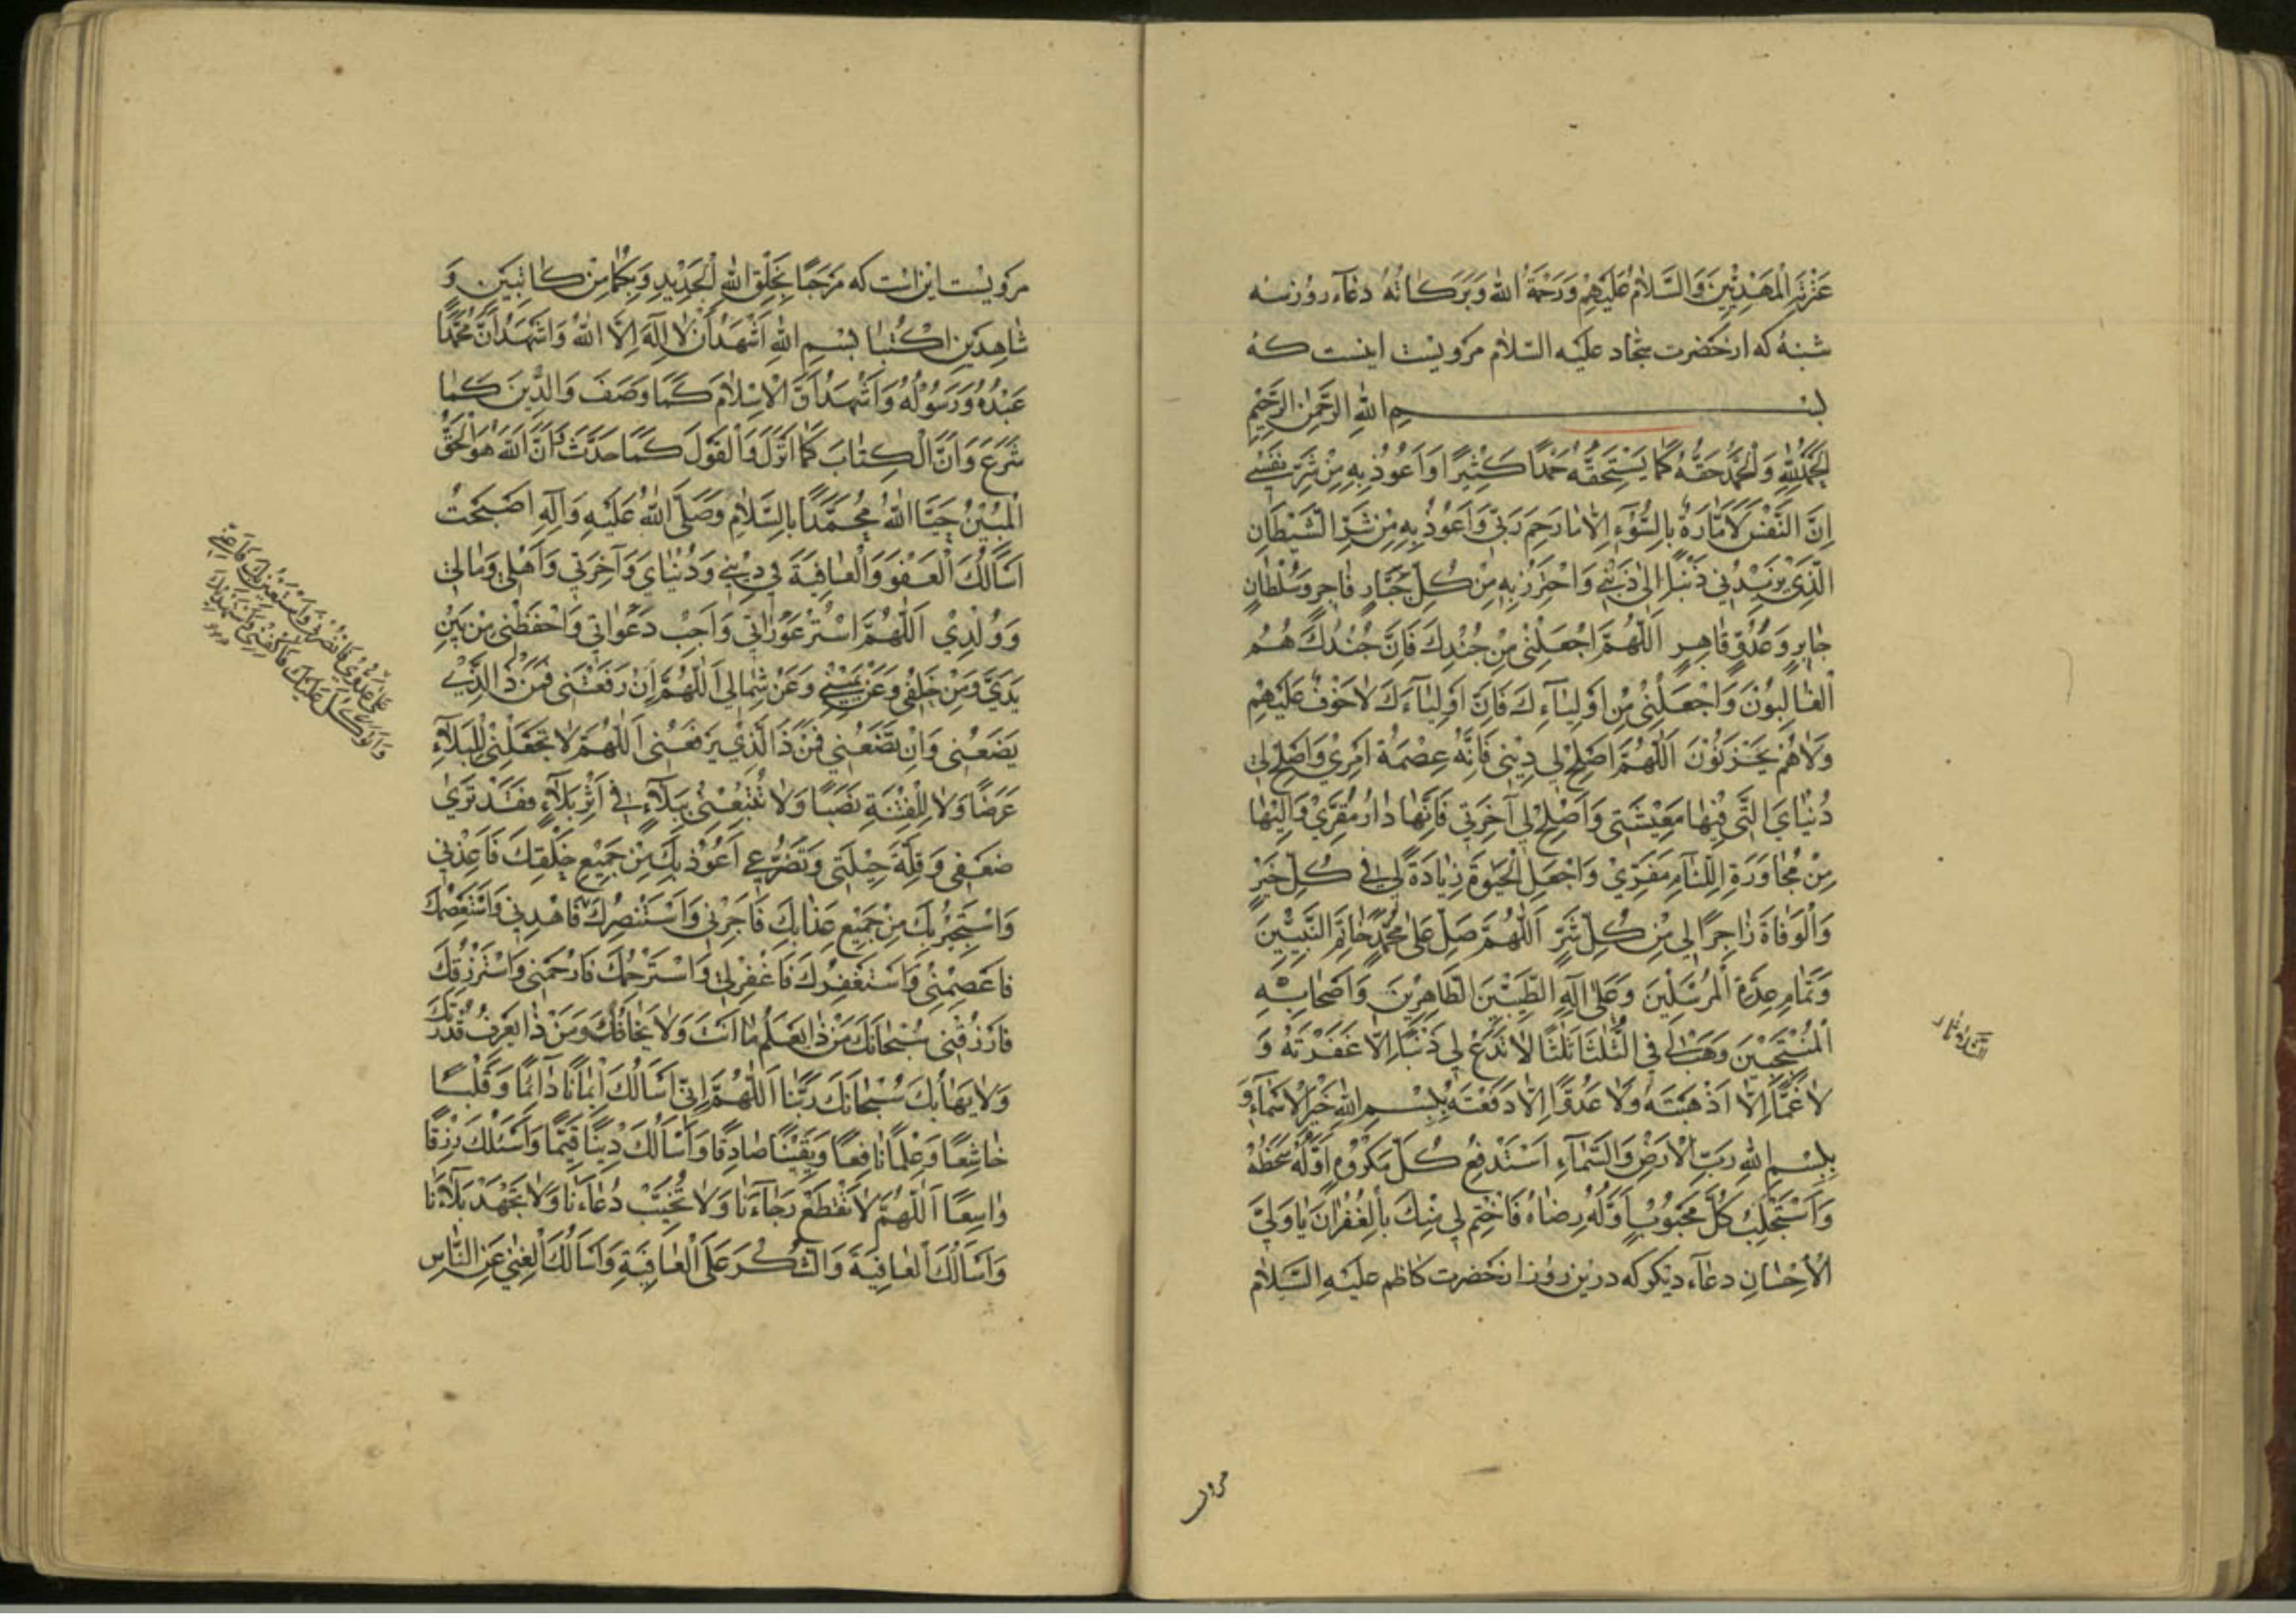 عِتْرَتِهِ الْمَهْدِيِّينَ وَالسَّلَامُ عَلَيْهِمْ وَرَحْمَةُ اللهِ وَبَرَكَاتُهُ دعاء روز سه
شنبه که از حضرت سجاد علیه السلام مرویست اینست که
بِسْمِ اللهِ الرَّحْمٰنِ الرَّحِيمِ
اَلْحَمْدُ لِلّٰهِ وَالْحَمْدُ حَقُّهُ كَمَا يَسْتَحِقُّهُ حَمْدًا كَثِيرًا وَاَعُوذُ بِهِ مِنْ شَرِّ نَفْسِي
اِنَّ النَّفْسَ لَاَمَّارَةٌ بِالسُّوءِ اِلَّا مَا رَحِمَ رَبِّي وَاَعُوذُ بِهِ مِنْ شَرِّ الشَّيْطَانِ
الَّذِي يَزِيدُنِي ذَنْبًا اِلَى ذَنْبِي وَاَحْتَرِزُ بِهِ مِنْ كُلِّ جَبَّارٍ فَاجِرٍ وَسُلْطَانٍ
جَابِرٍ وَعَدُوٍّ قَاهِرٍ اَللّٰهُمَّ اجْعَلْنِي مِنْ جُنْدِكَ فَاِنَّ جُنْدَكَ هُمُ
الْغَالِبُونَ وَاجْعَلْنِي مِنْ اَوْلِيَاءِكَ فَاِنَّ اَوْلِيَاءَكَ لَا خَوْفٌ عَلَيْهِمْ
وَلَا هُمْ يَحْزَنُونَ اَللّٰهُمَّ اَصْلِحْ لِي دِينِي فَاِنَّهُ عِصْمَةُ اَمْرِي وَاَصْلِحْ لِي
دُنْيَايَ الَّتِي فِيهَا مَعِيشَتِي وَاَصْلِحْ لِي آخِرَتِي فَاِنَّهَا دَارُ مَقَرِّي وَاِلَيْهَا
مِنْ مُجَاوَرَةِ اللِّئَامِ مَفَرِّي وَاجْعَلِ الْحَيٰوةَ زِيَادَةً لِي فِي كُلِّ خَيْرٍ
وَالْوَفَاةَ زَاجِرًا لِي مِنْ كُلِّ شَرٍّ اَللّٰهُمَّ صَلِّ عَلَى مُحَمَّدٍ خَاتَمِ النَّبِيِّينَ
وَتَمَامِ عِدَّةِ الْمُرْسَلِينَ وَعَلَى آلِهِ الطَّيِّبِينَ الطَّاهِرِينَ وَاَصْحَابِهِ
الْمُنْتَجَبِينَ وَهَبْ لِي فِي الثُّلٰثَا ثَلٰثًا لَا تَدَعْ لِي ذَنْبًا اِلَّا غَفَرْتَهُ وَ
لَا غَمًّا اِلَّا اَذْهَبْتَهُ وَلَا عَدُوًّا اِلَّا دَفَعْتَهُ بِبِسْمِ اللهِ خَيْرِ الْاَسْمَاءِ وَ
بِبِسْمِ اللهِ رَبِّ الْاَرْضِ وَالسَّمَاءِ اَسْتَدْفِعُ كُلَّ مَكْرُوهٍ اَوَّلُهُ سَخَطُهُ
وَاَسْتَجْلِبُ كُلَّ مَحْبُوبٍ اَوَّلُهُ رِضَاهُ فَاخْتِمْ لِي مِنْكَ بِالْغُفْرَانِ يَا وَلِيَّ
الْاِحْسَانِ دعاء دیگر که درین روز از حضرت کاظم علیه السلام
مرویست
مرویست این است که مَرْحَبًا بِخَلْقِ اللهِ الْجَدِيدِ وَبِكُمَا مِنْ كَاتِبَيْنِ وَ
شَاهِدَيْنِ اكْتُبَا بِسْمِ اللهِ اَشْهَدُ اَنْ لَا اِلٰهَ اِلَّا اللهُ وَاَشْهَدُ اَنَّ مُحَمَّدًا
عَبْدُهُ وَرَسُولُهُ وَاَشْهَدُ اَنَّ الْاِسْلَامَ كَمَا وَصَفَ وَالدِّينَ كَمَا
شَرَعَ وَاَنَّ الْكِتَابَ كَمَا اَنْزَلَ وَالْقَوْلَ كَمَا حَدَّثَ وَاَنَّ اللهَ هُوَ الْحَقُّ
الْمُبِينُ حَيَّا اللهُ مُحَمَّدًا بِالسَّلَامِ وَصَلَّى اللهُ عَلَيْهِ وَآلِهِ اَصْبَحْتُ
اَسْاَلُكَ الْعَفْوَ وَالْعَافِيَةَ فِي دِينِي وَدُنْيَايَ وَآخِرَتِي وَاَهْلِي وَمَالِي
وَوُلْدِي اَللّٰهُمَّ اسْتُرْ عَوْرَاتِي وَاَجِبْ دَعَوَاتِي وَاحْفَظْنِي مِنْ بَيْنِ
يَدَيَّ وَمِنْ خَلْفِي وَعَنْ يَمِينِي وَعَنْ شِمَالِي اَللّٰهُمَّ اِنْ رَفَعْتَنِي فَمَنْ ذَا الَّذِي
يَضَعُنِي وَاِنْ تَضَعْنِي فَمَنْ ذَا الَّذِي يَرْفَعُنِي اَللّٰهُمَّ لَا تَجْعَلْنِي لِلْبَلَاءِ
غَرَضًا وَلَا لِلْفِتْنَةِ نَصَبًا وَلَا تُتْبِعْنِي بِبَلَاءٍ فِي اَثَرِ بَلَاءٍ فَقَدْ تَرَى
ضَعْفِي وَقِلَّةَ حِيلَتِي وَتَضَرُّعِي اَعُوذُ بِكَ مِنْ جَمِيعِ خَلْقِكَ فَاَعِذْنِي
وَاَسْتَجِيرُ بِكَ مِنْ جَمِيعِ عَذَابِكَ فَاَجِرْنِي وَاَسْتَنْصِرُكَ فَاهْدِنِي وَاَسْتَعْصِمُكَ
فَاعْصِمْنِي وَاَسْتَغْفِرُكَ فَاغْفِرْ لِي وَاَسْتَرْحِمُكَ فَارْحَمْنِي وَاَسْتَرْزِقُكَ
فَارْزُقْنِي سُبْحَانَكَ مَنْ ذَا يَعْلَمُ مَا اَنْتَ وَلَا يَخَافُكَ وَمَنْ ذَا يَعْرِفُ قُدْرَتَكَ
وَلَا يَهَابُكَ سُبْحَانَكَ رَبَّنَا اَللّٰهُمَّ اِنِّي اَسْاَلُكَ اِيمَانًا دَائِمًا وَقَلْبًا
خَاشِعًا وَعِلْمًا نَافِعًا وَيَقِينًا صَادِقًا وَاَسْاَلُكَ دِينًا قَيِّمًا وَاَسْئَلُكَ رِزْقًا
وَاسِعًا اَللّٰهُمَّ لَا تَقْطَعْ رَجَاءَنَا وَلَا تُخَيِّبْ دُعَاءَنَا وَلَا تُجْهِدْ بَلَاءَنَا
وَاَسْاَلُكَ الْعَافِيَةَ وَالشُّكْرَ عَلَى الْعَافِيَةِ وَاَسْاَلُكَ الْغِنَى عَنِ النَّاسِ
عَلَى عَدُوِّي فَانْصُرْنِي وَاَسْتَعِينُ بِكَ فَاَعِنِّي
وَاَتَوَكَّلُ عَلَيْكَ فَاكْفِنِي وَاَسْتَهْدِيكَ